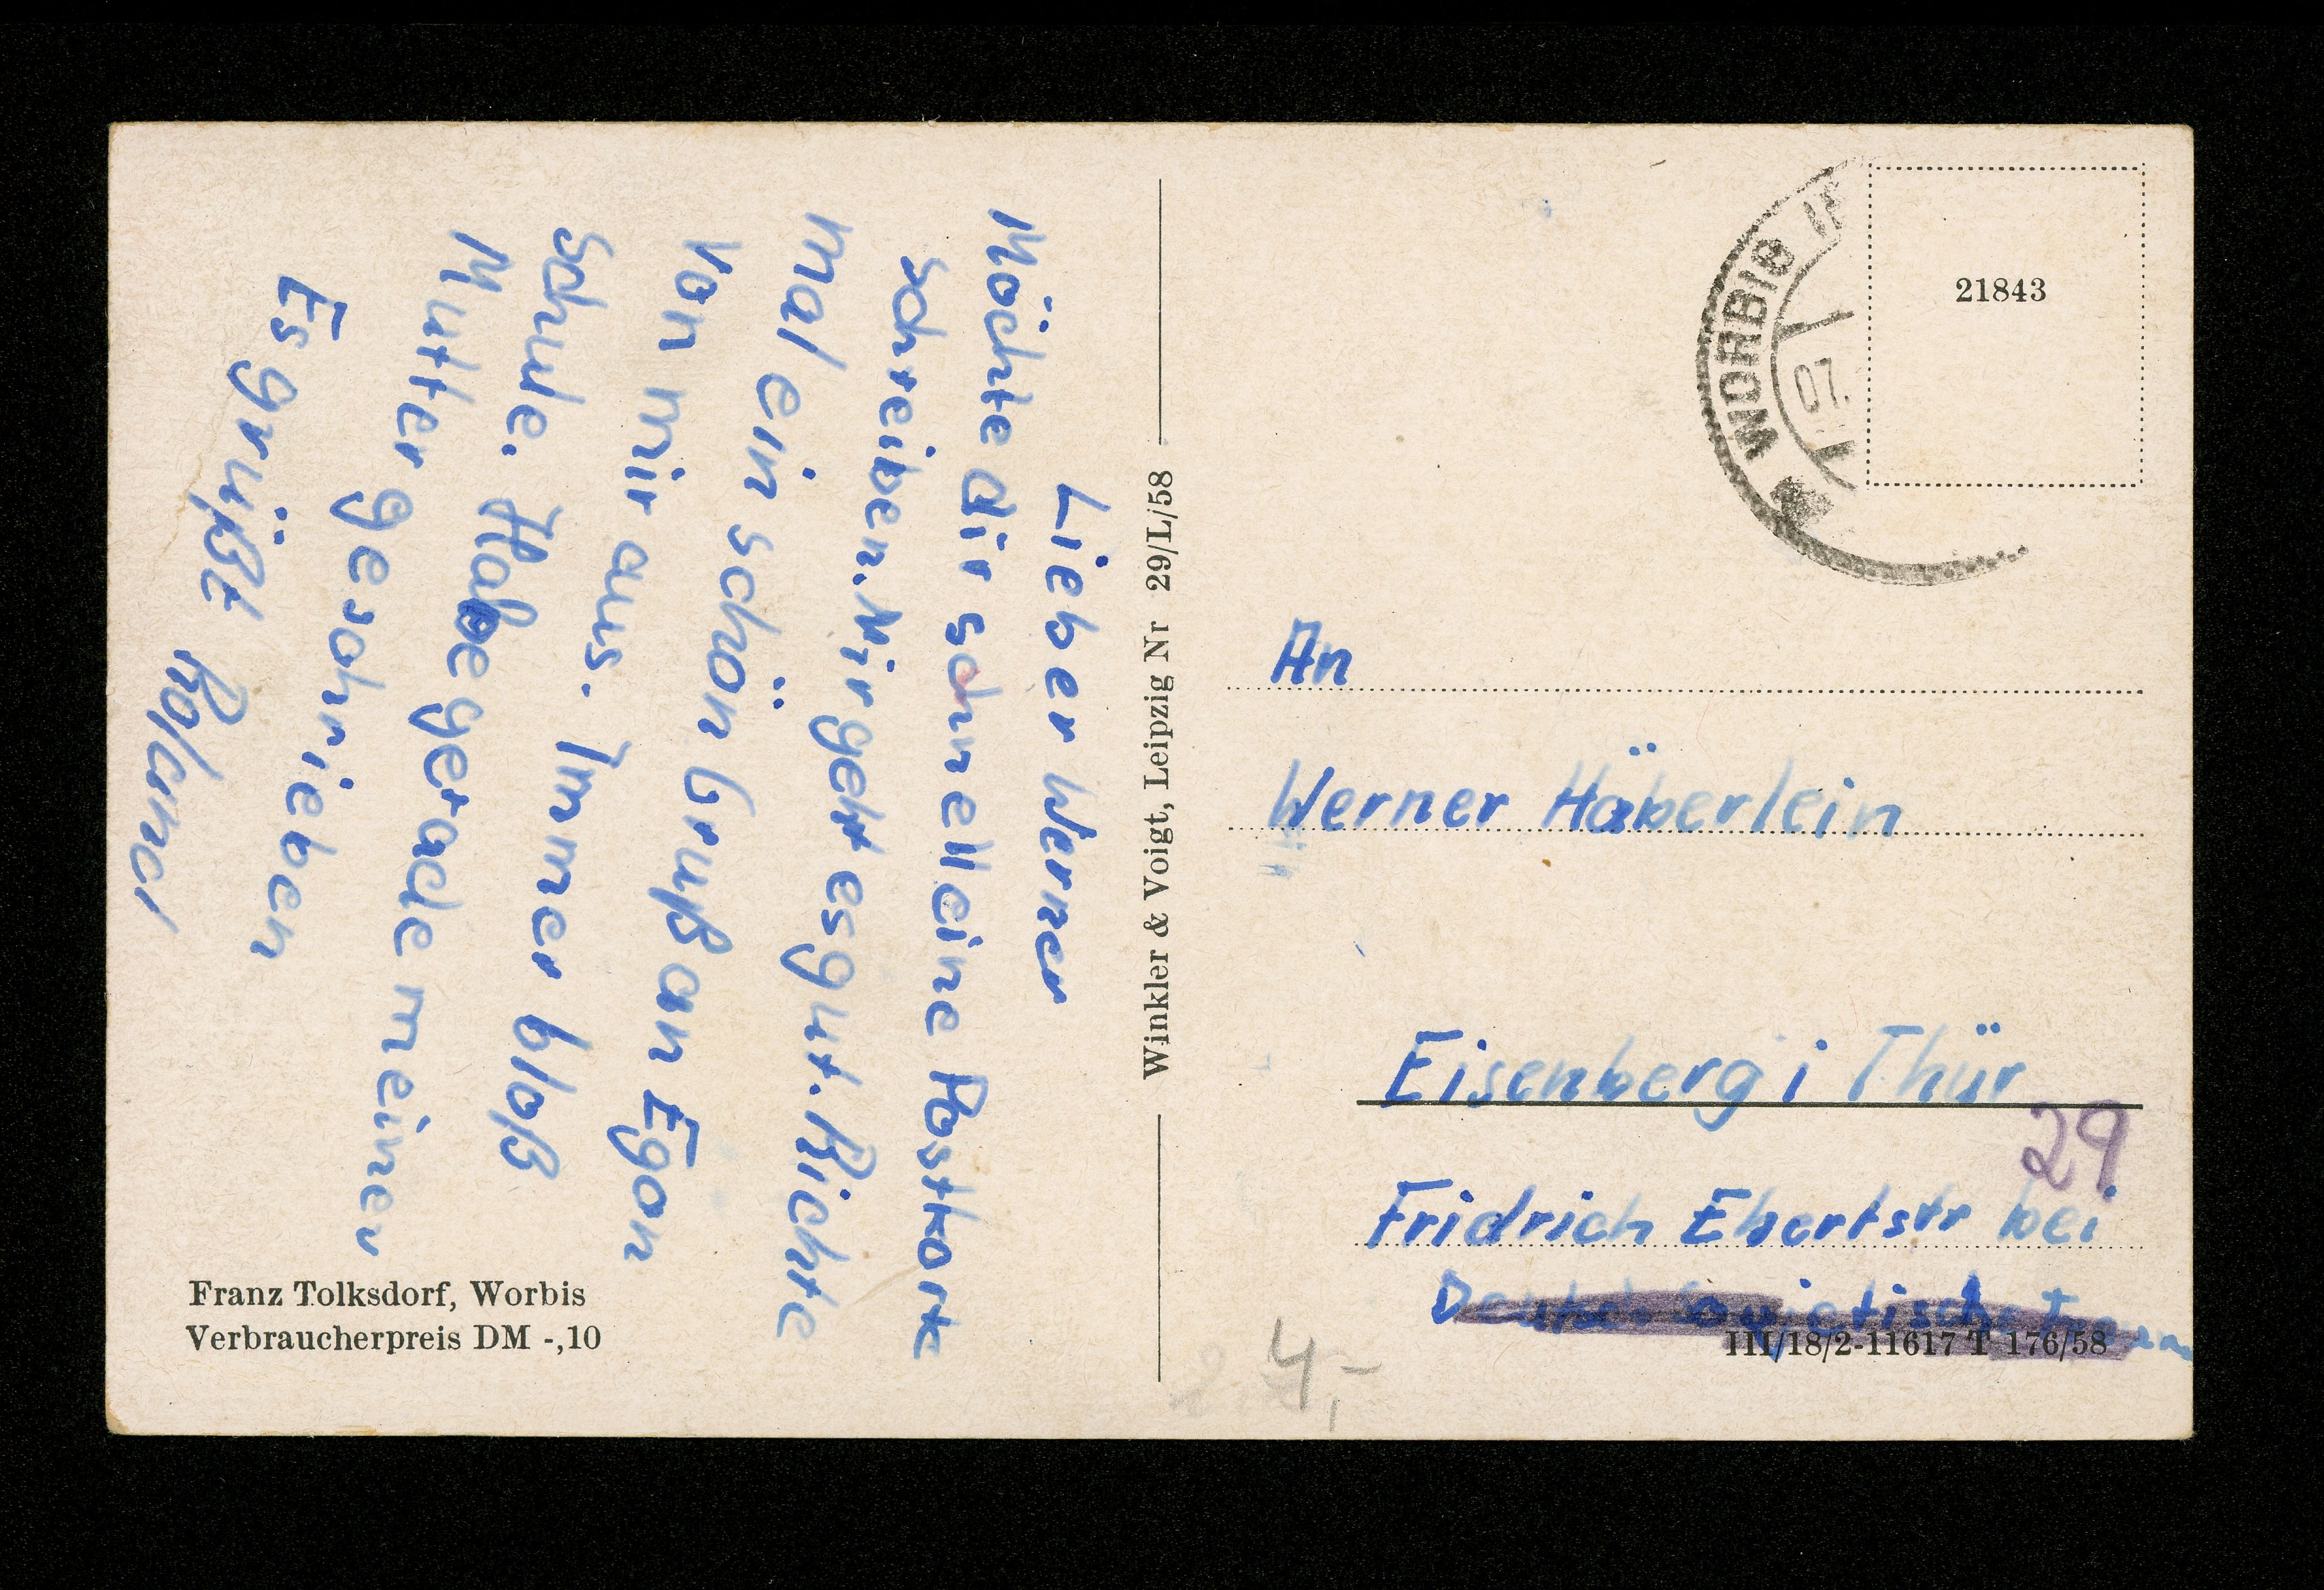 Lieber Werner
Möchte dir schnell eine Postkarte
schreiben. Mir geht es gut. Richte
mal ein schön Gruß an Egon
von mir aus. Immer bloß
Schule. Habe gerade meiner
Mutter geschrieben
Es grüßt Roland
Franz Tolksdorf, Worbis
Verbraucherpreis DM -,10
Winkler & Voigt, Leipzig Nr 29/L/58
21843
WORBIS
07.
An
Werner Häberlein
Eisenberg i Thür
29
Fridrich Ebertstr bei
III/18/2-11617 T 176/58
4,-